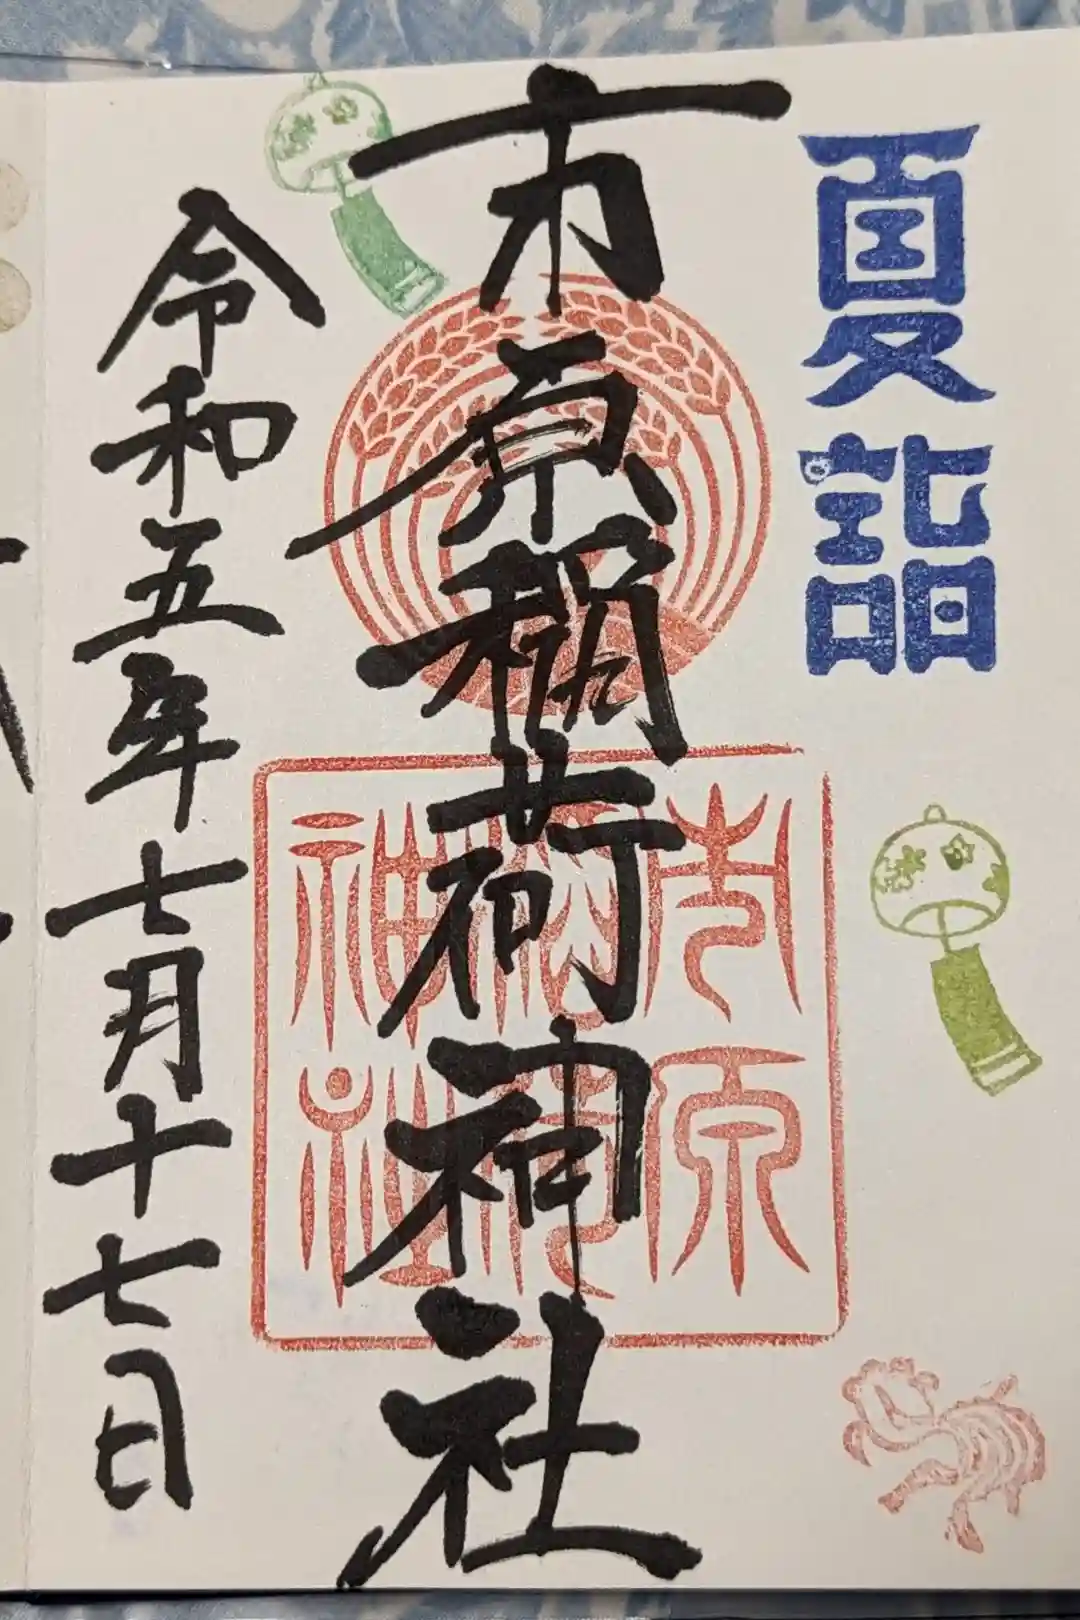 夏詣
市原稲荷神社
市原
稲荷
神社
令和五年七月十七日